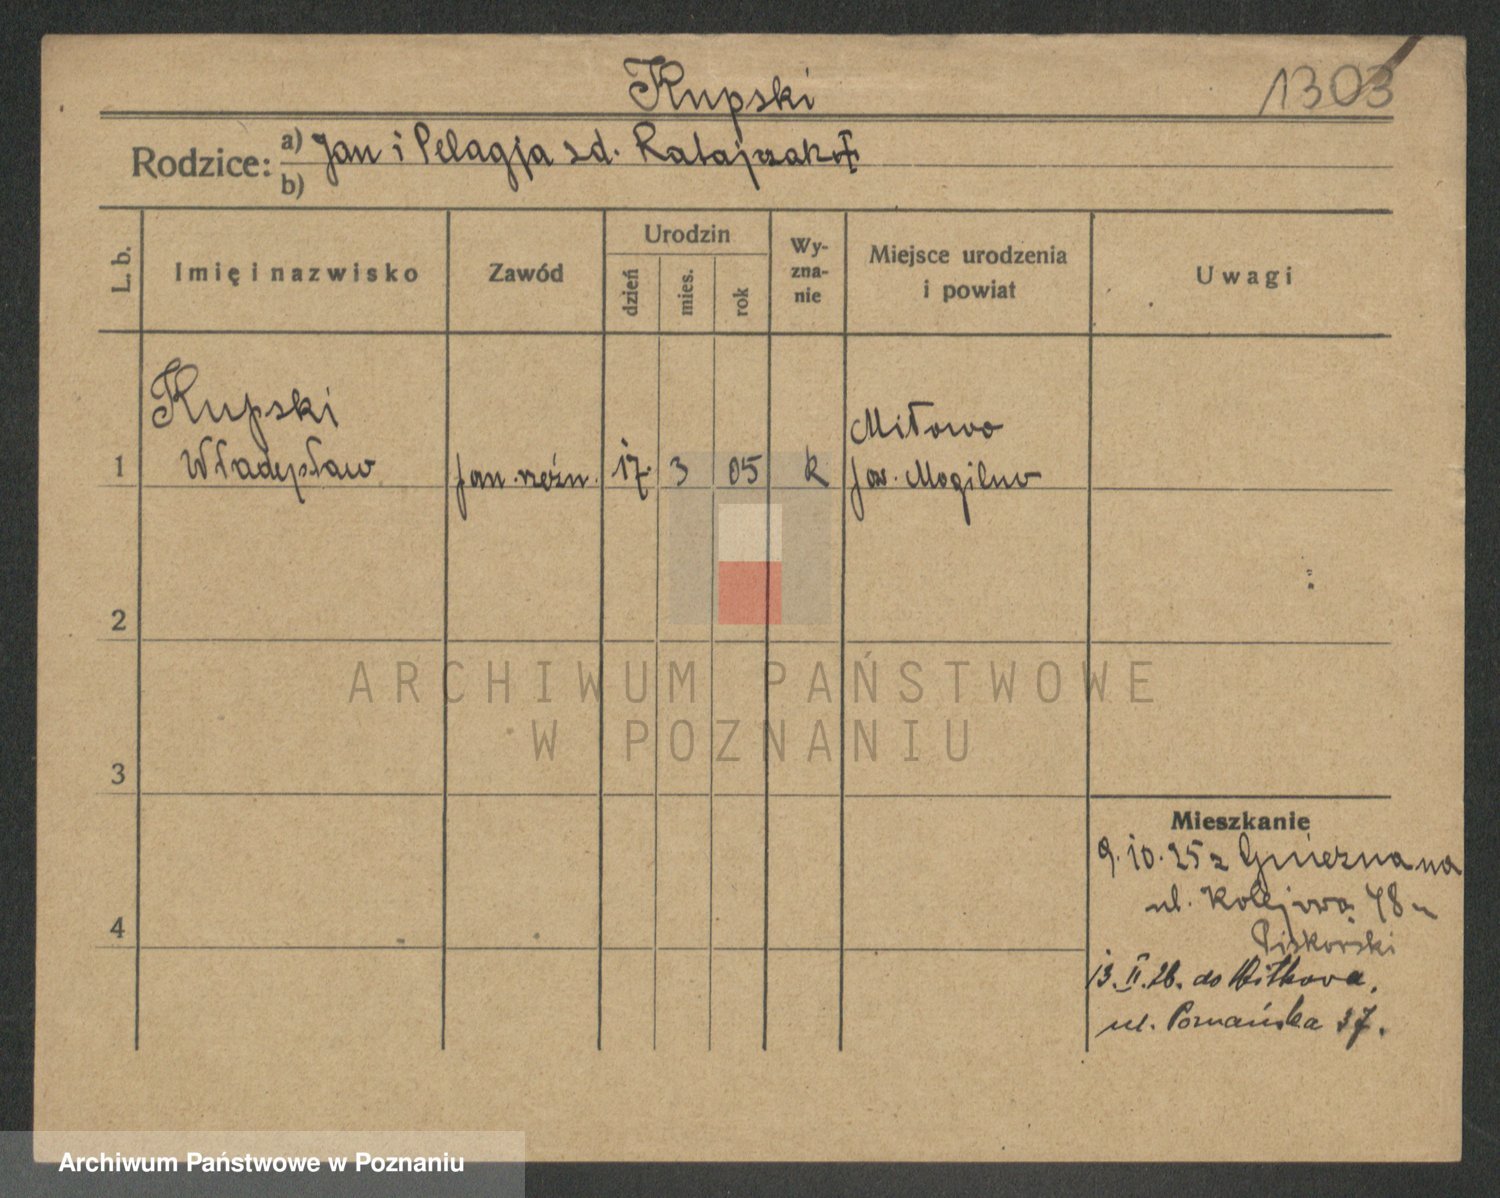 Kupski
1303
Rodzice: a) Jan i Pelagja zd. Ratajczak
b)
L. b.
Imię i nazwisko
Zawód
Urodzin
dzień
mies.
rok
Wy-
zna-
nie
Miejsce urodzenia
i powiat
Uwagi
Kupski
1 Władysław
17. 3 05 k
Miłowo
pow. Mogilno
2
3
4
Mieszkanie
9.10.25 z Gniezna na
ul. Kolejowa 48
Piskorski
13.II.26. do Witkowa,
ul. Poznańska 37.
ARCHIWUM PAŃSTWOWE
W POZNANIU
Archiwum Państwowe w Poznaniu